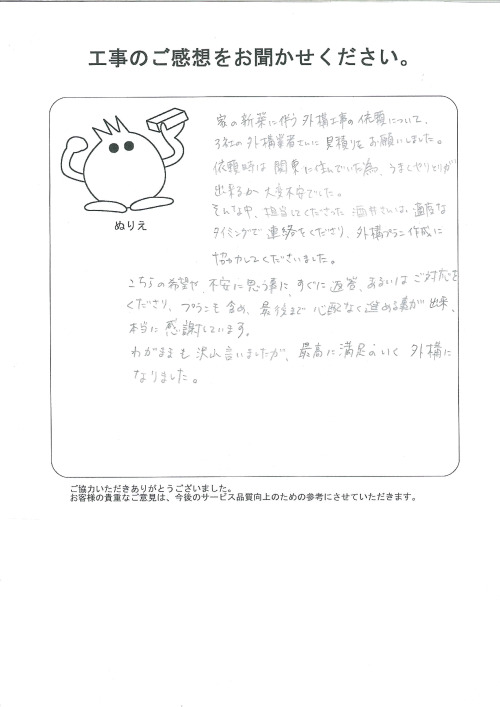 工事のご感想をお聞かせください。
家の新築に伴う外構工事の依頼について、
3社の外構業者さんに見積りをお願いしました。
依頼時は関東に住んでいた為、うまくやりとりが
出来るか大変不安でした。
そんな中、担当してくださった酒井さんは、適度な
タイミングで連絡をくださり、外構プラン作成に
協力してくださいました。
ぬりえ
こちらの希望や、不安に思う事に、すぐに返答、あるいはご対応を
くださり、プランも含め、最後まで心配なく進める事が出来、
本当に感謝しています。
わがままも沢山言いましたが、最高に満足のいく外構に
なりました。
ご協力いただきありがとうございました。
お客様の貴重なご意見は、今後のサービス品質向上のための参考にさせていただきます。